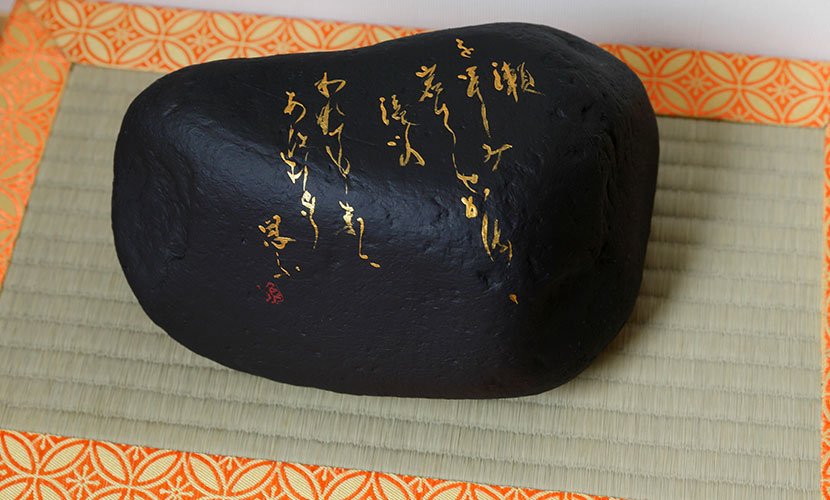 瀬
をはやみ
岩にせかるゝ
滝川の
われても末に
あはむとぞ
思ふ